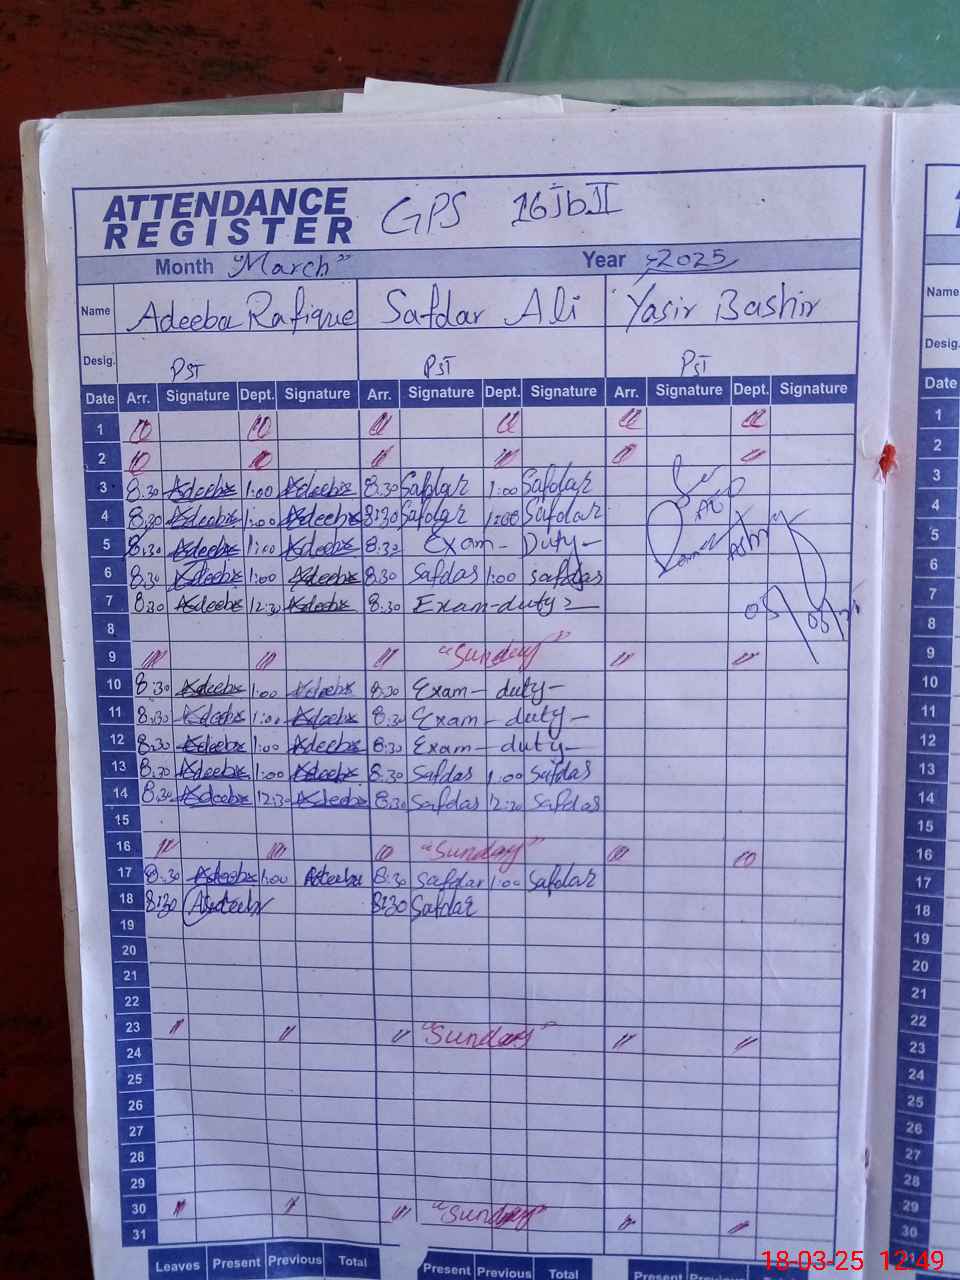 ATTENDANCE REGISTER GPS 16JbII
Month "March" Year 2025
Name Adeeba Rafique Safdar Ali Yasir Bashir Name
Desig. PST PST PST Desig.
Date Arr. Signature Dept. Signature Arr. Signature Dept. Signature Arr. Signature Dept. Signature Date
1 1
2 2
3 8:30 Adeeba 1:00 Adeeba 8:30 Safdar 1:00 Safdar 3
4 8:30 Adeeba 1:00 Adeeba 8:30 Safdar 1:00 Safdar 4
5 8:30 Adeeba 1:00 Adeeba 8:30 Exam - Duty - 5
6 8:30 Adeeba 1:00 Adeeba 8:30 Safdar 1:00 Safdar 6
7 8:30 Adeeba 12:30 Adeeba 8:30 Exam - duty 7
8 8
9 "Sunday" 9
10 8:30 Adeeba 1:00 Adeeba 8:30 Exam - duty - 10
11 8:30 Adeeba 1:00 Adeeba 8:30 Exam - duty - 11
12 8:30 Adeeba 1:00 Adeeba 8:30 Exam - duty - 12
13 8:30 Adeeba 1:00 Adeeba 8:30 Safdar 1:00 Safdar 13
14 8:30 Adeeba 12:30 Adeeba 8:30 Safdar 12:30 Safdar 14
15 15
16 "Sunday" 16
17 8:30 Adeeba 1:00 Adeeba 8:30 Safdar 1:00 Safdar 17
18 8:30 Adeeba 8:30 Safdar 18
19 19
20 20
21 21
22 22
23 "Sunday" 23
24 24
25 25
26 26
27 27
28 28
29 29
30 "Sunday" 30
31 31
Leaves Present Previous Total Present Previous Total Present Previous Total
18-03-25 12:49